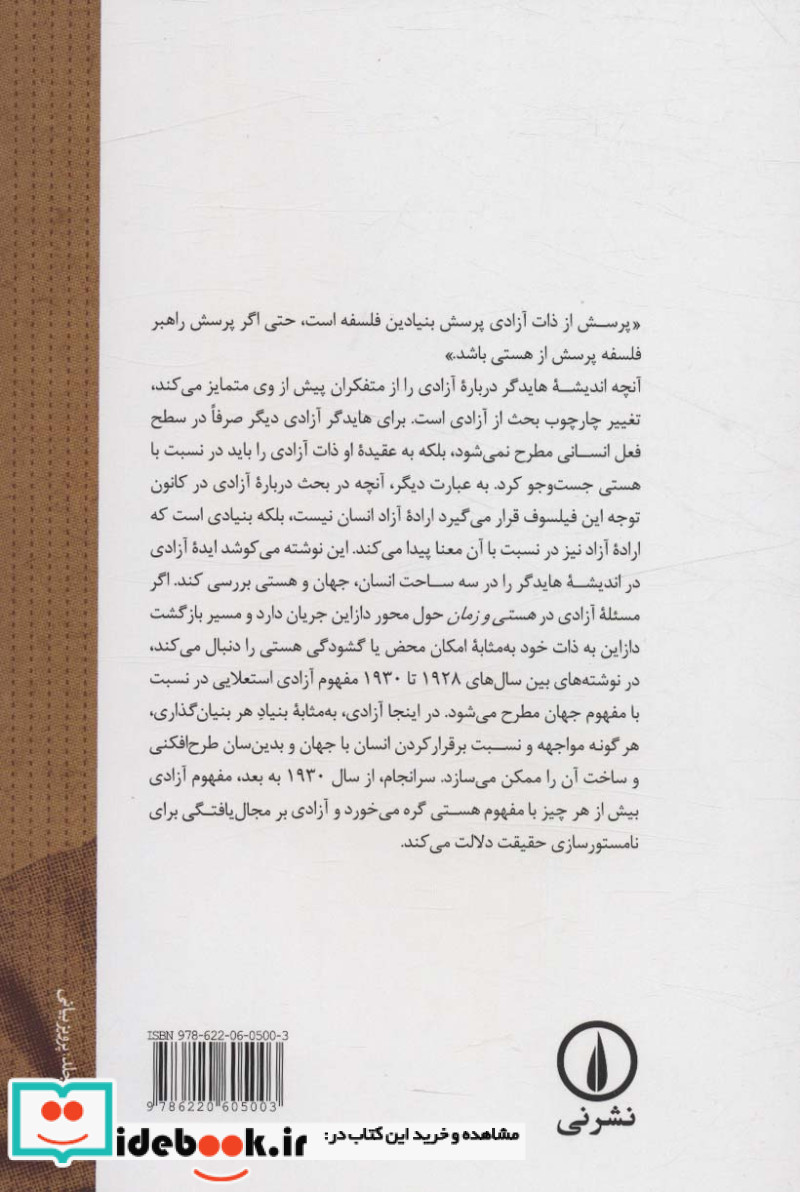 «پرسش از ذات آزادی پرسش بنیادین فلسفه است، حتی اگر پرسش راهبر
فلسفه پرسش از هستی باشد.»
آنچه اندیشهٔ هایدگر دربارهٔ آزادی را از متفکران پیش از وی متمایز می‌کند،
تغییر چارچوب بحث از آزادی است. برای هایدگر آزادی دیگر صرفاً در سطح
فعل انسانی مطرح نمی‌شود، بلکه به عقیدهٔ او ذات آزادی را باید در نسبت با
هستی جست‌وجو کرد. به عبارت دیگر، آنچه در بحث دربارهٔ آزادی در کانون
توجه این فیلسوف قرار می‌گیرد ارادهٔ آزاد انسان نیست، بلکه بنیادی است که
ارادهٔ آزاد نیز در نسبت با آن معنا پیدا می‌کند. این نوشته می‌کوشد ایدهٔ آزادی
در اندیشهٔ هایدگر را در سه ساحت انسان، جهان و هستی بررسی کند. اگر
مسئلهٔ آزادی در هستی و زمان حول محور دازاین جریان دارد و مسیر بازگشت
دازاین به ذات خود به‌مثابهٔ امکان محض یا گشودگی هستی را دنبال می‌کند،
در نوشته‌های بین سال‌های ۱۹۲۸ تا ۱۹۳۰ مفهوم آزادی استعلایی در نسبت
با مفهوم جهان مطرح می‌شود. در اینجا آزادی، به‌مثابهٔ بنیادِ هر بنیان‌گذاری،
هر گونه مواجهه و نسبت برقرارکردن انسان با جهان و بدین‌سان طرح‌افکنی
و ساخت آن را ممکن می‌سازد. سرانجام، از سال ۱۹۳۰ به بعد، مفهوم آزادی
بیش از هر چیز با مفهوم هستی گره می‌خورد و آزادی بر مجال‌یافتگی برای
نامستورسازی حقیقت دلالت می‌کند.
پرویز بیانی
ISBN 978-622-06-0500-3
9 786220 605003
نشرنی
مشاهده و خرید این کتاب در:
idebook.ir